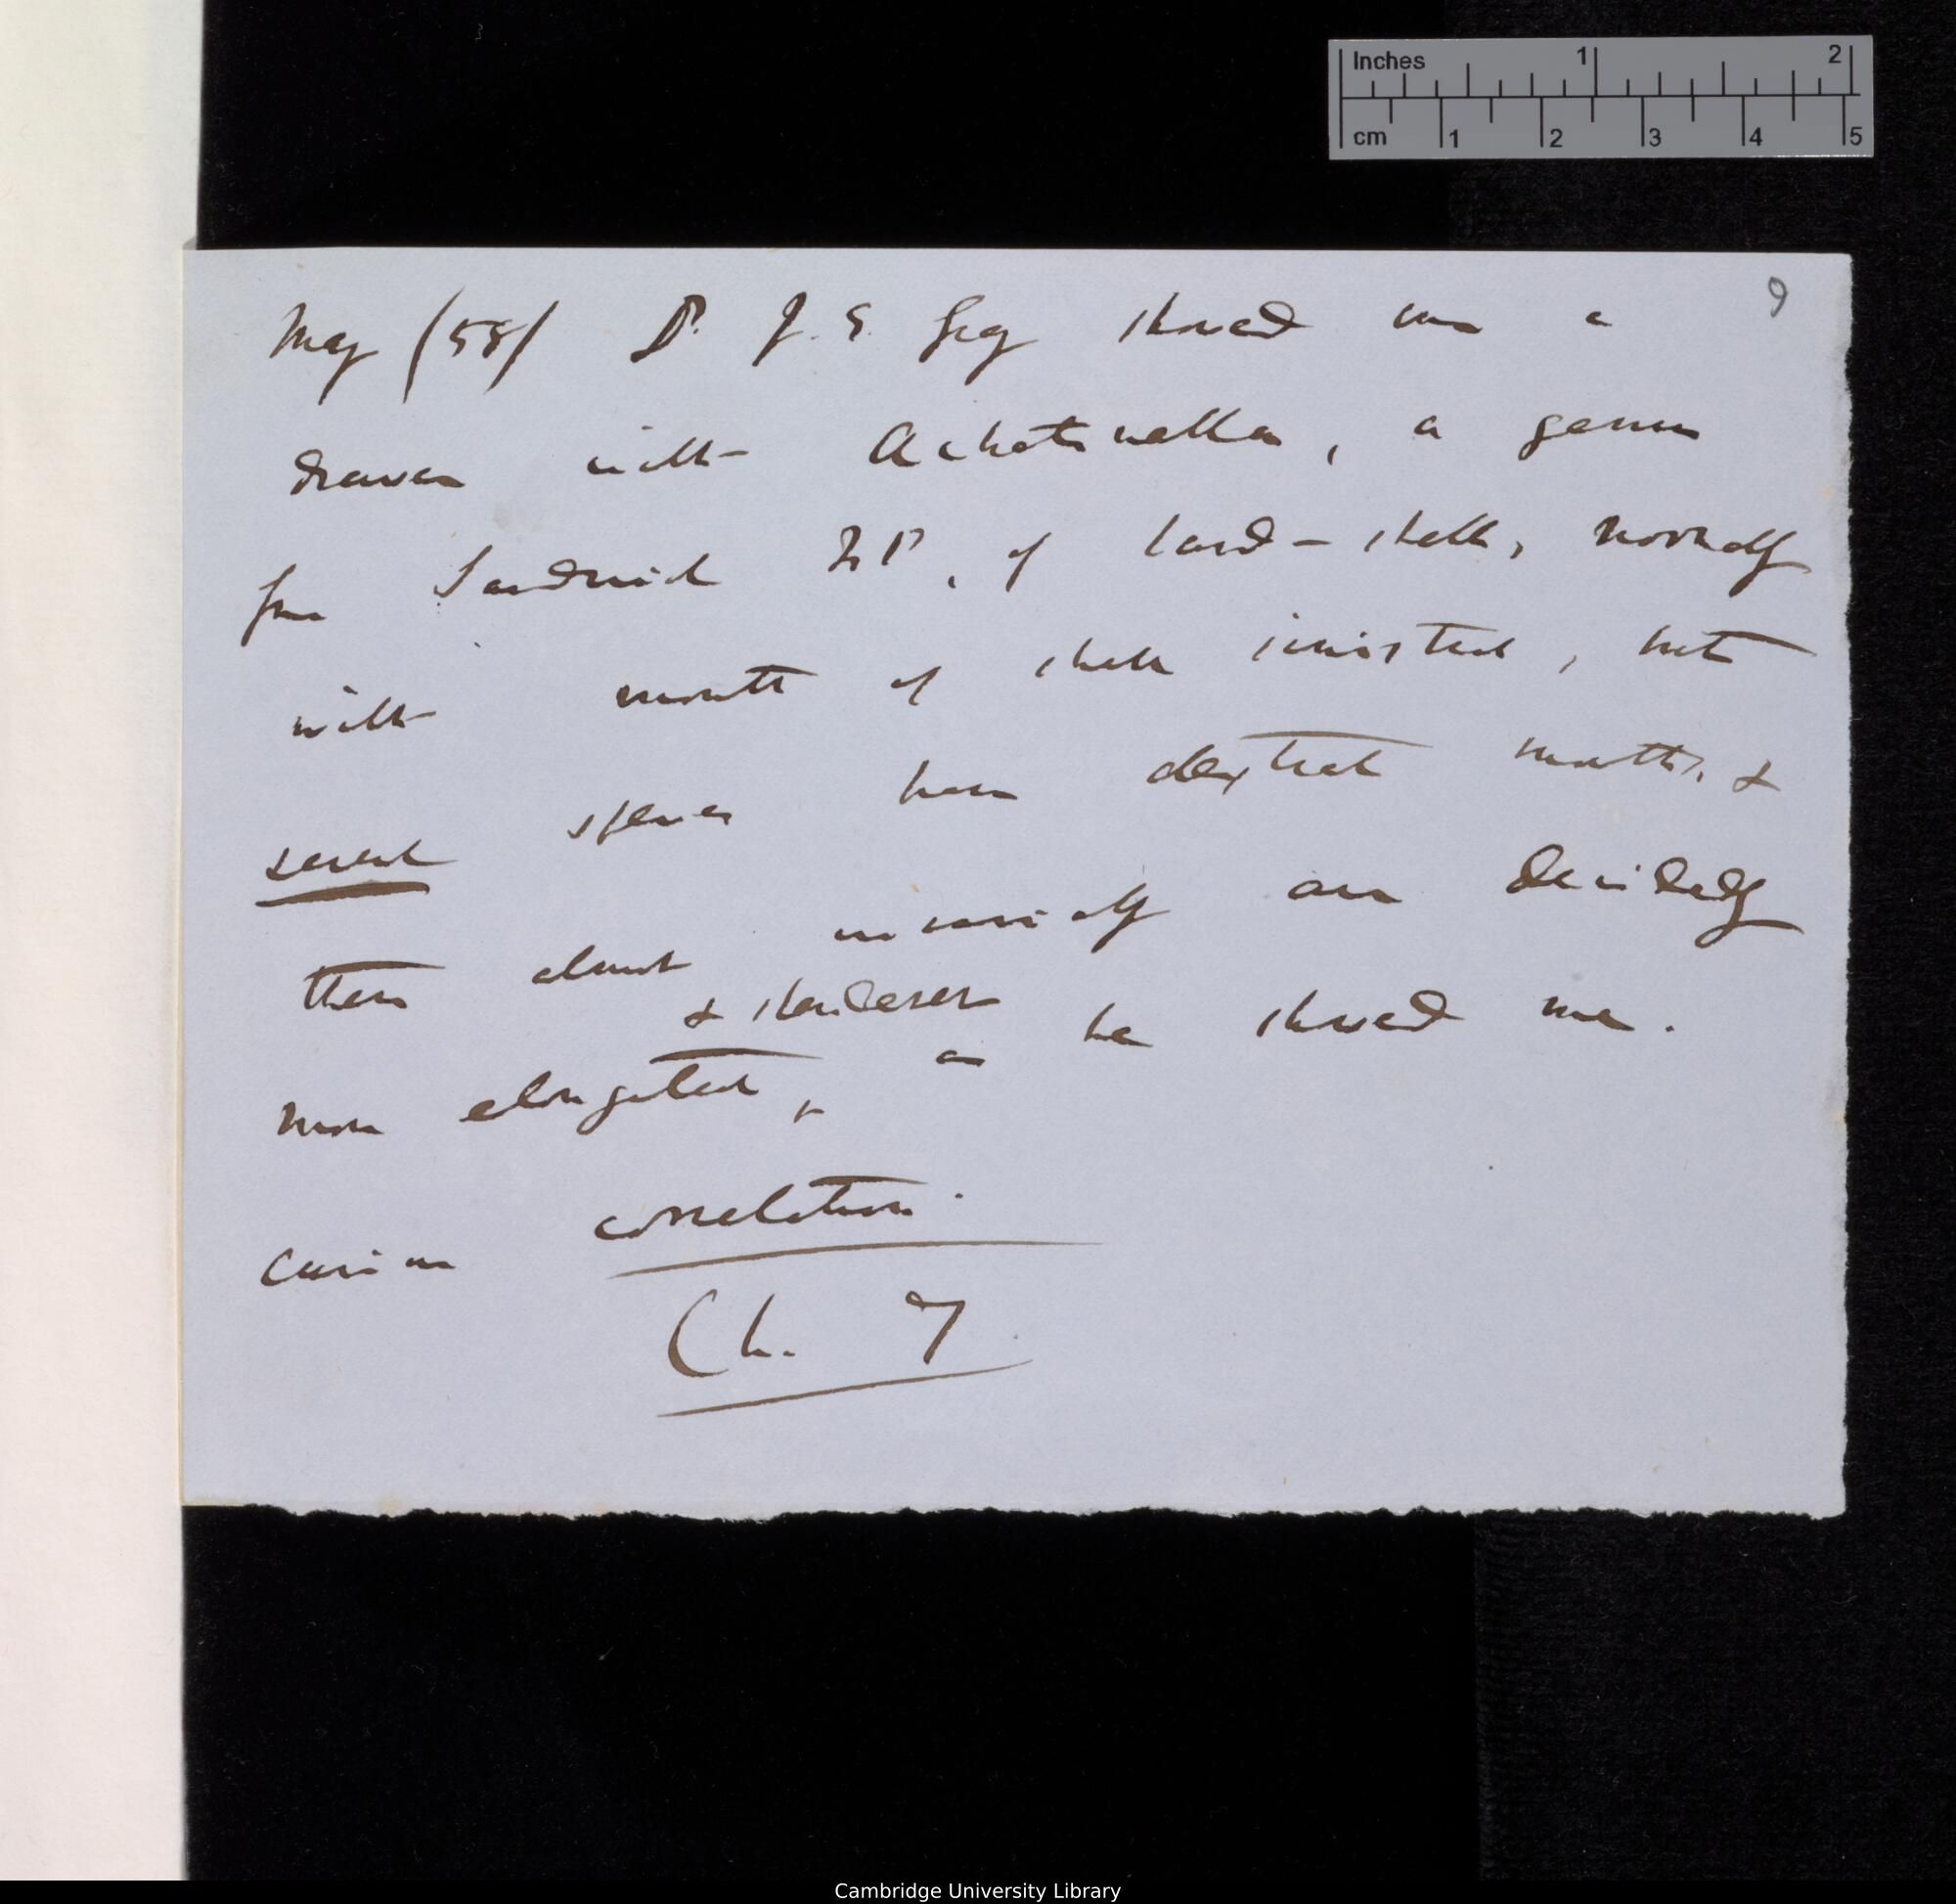 Inches 1 2
cm 1 2 3 4 5
9
May /58/ Dr. J. E. Gray showed me a
drawer with Achatinella, a genus
from Sandwich Isd, of land-shells, normally
with mouth of shell sinistral, but
several species have dextral mouths, &
these almost invariably are decidedly
& slenderer
more elongated, as he showed me.
Curious correlation.
Ch. 7
Cambridge University Library